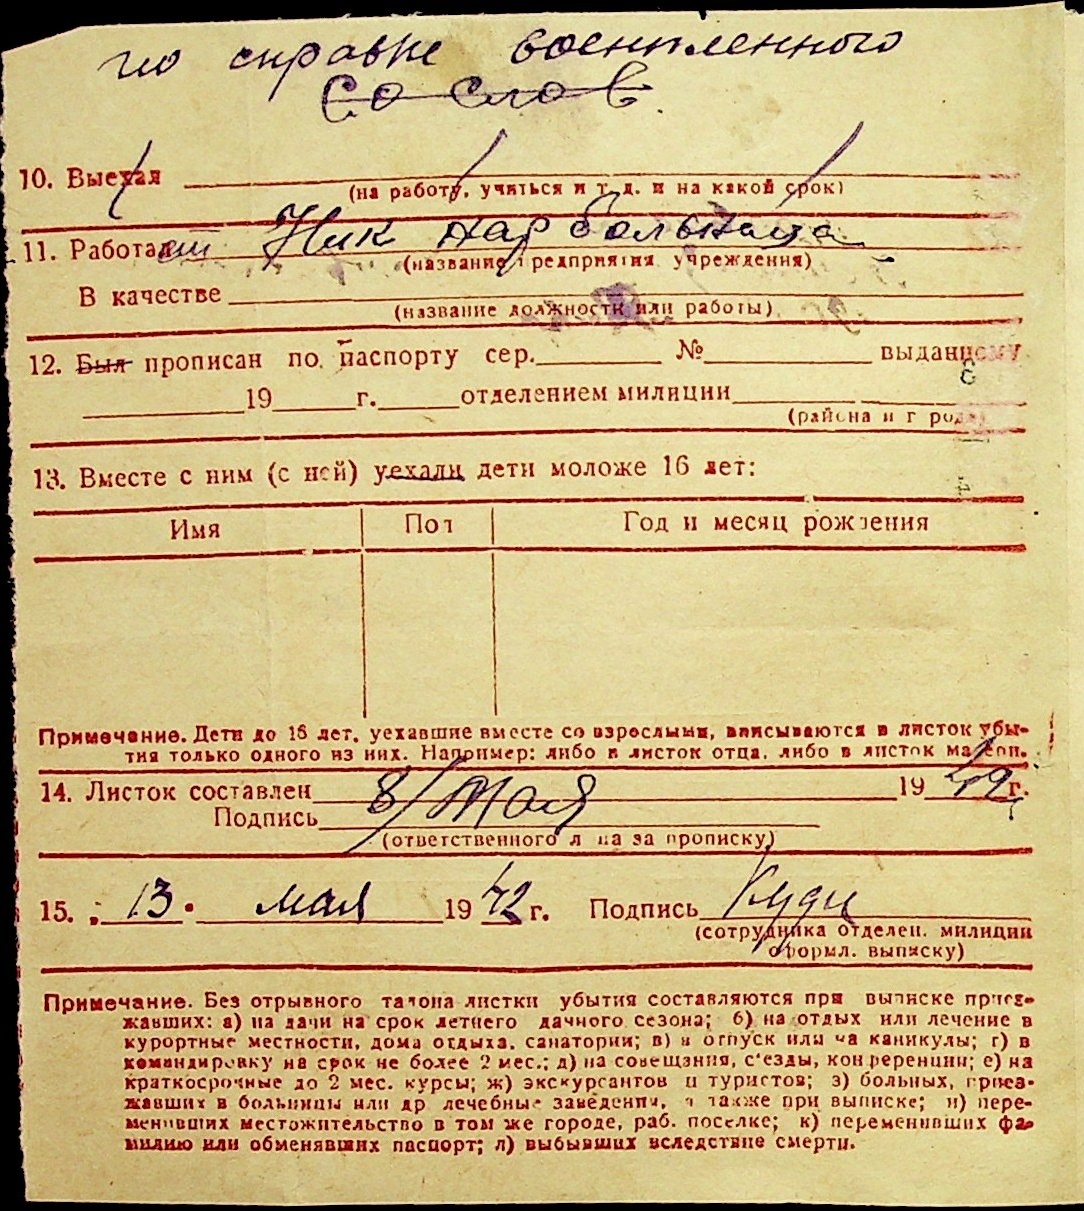 по справке военпленного
Со слов
10. Выехал
(на работу, учиться и т. д. и на какой срок)
11. Работает Ник нар больница
(название предприятия учреждения)
В качестве
(название должности или работы)
12. Был прописан по паспорту сер. № выданному
19 г. отделением милиции
(района и города)
13. Вместе с ним (с ней) уехали дети моложе 16 лет:
Имя Пол Год и месяц рождения
Примечание. Дети до 16 лет, уехавшие вместе со взрослыми, вписываются в листок убы-
тия только одного из них. Например: либо в листок отца, либо в листок матери.
14. Листок составлен 8/мая 1942 г.
Подпись
(ответственного лица за прописку)
15. 13 мая 1942 г. Подпись
(сотрудника отделен. милиции
оформл. выписку)
Примечание. Без отрывного талона листки убытия составляются при выписке приез-
жавших: а) на дачи на срок летнего дачного сезона; б) на отдых или лечение в
курортные местности, дома отдыха, санатории; в) в отпуск или на каникулы; г) в
командировку на срок не более 2 мес.; д) на совещания, с'езды, конференции; е) на
краткосрочные до 2 мес. курсы; ж) экскурсантов и туристов; з) больных, приез-
жавших в больницы или др лечебные заведения, а также при выписке; и) пере-
менивших местожительство в том же городе, раб. поселке; к) переменивших фа-
милию или обменявших паспорт; л) выбывших вследствие смерти.